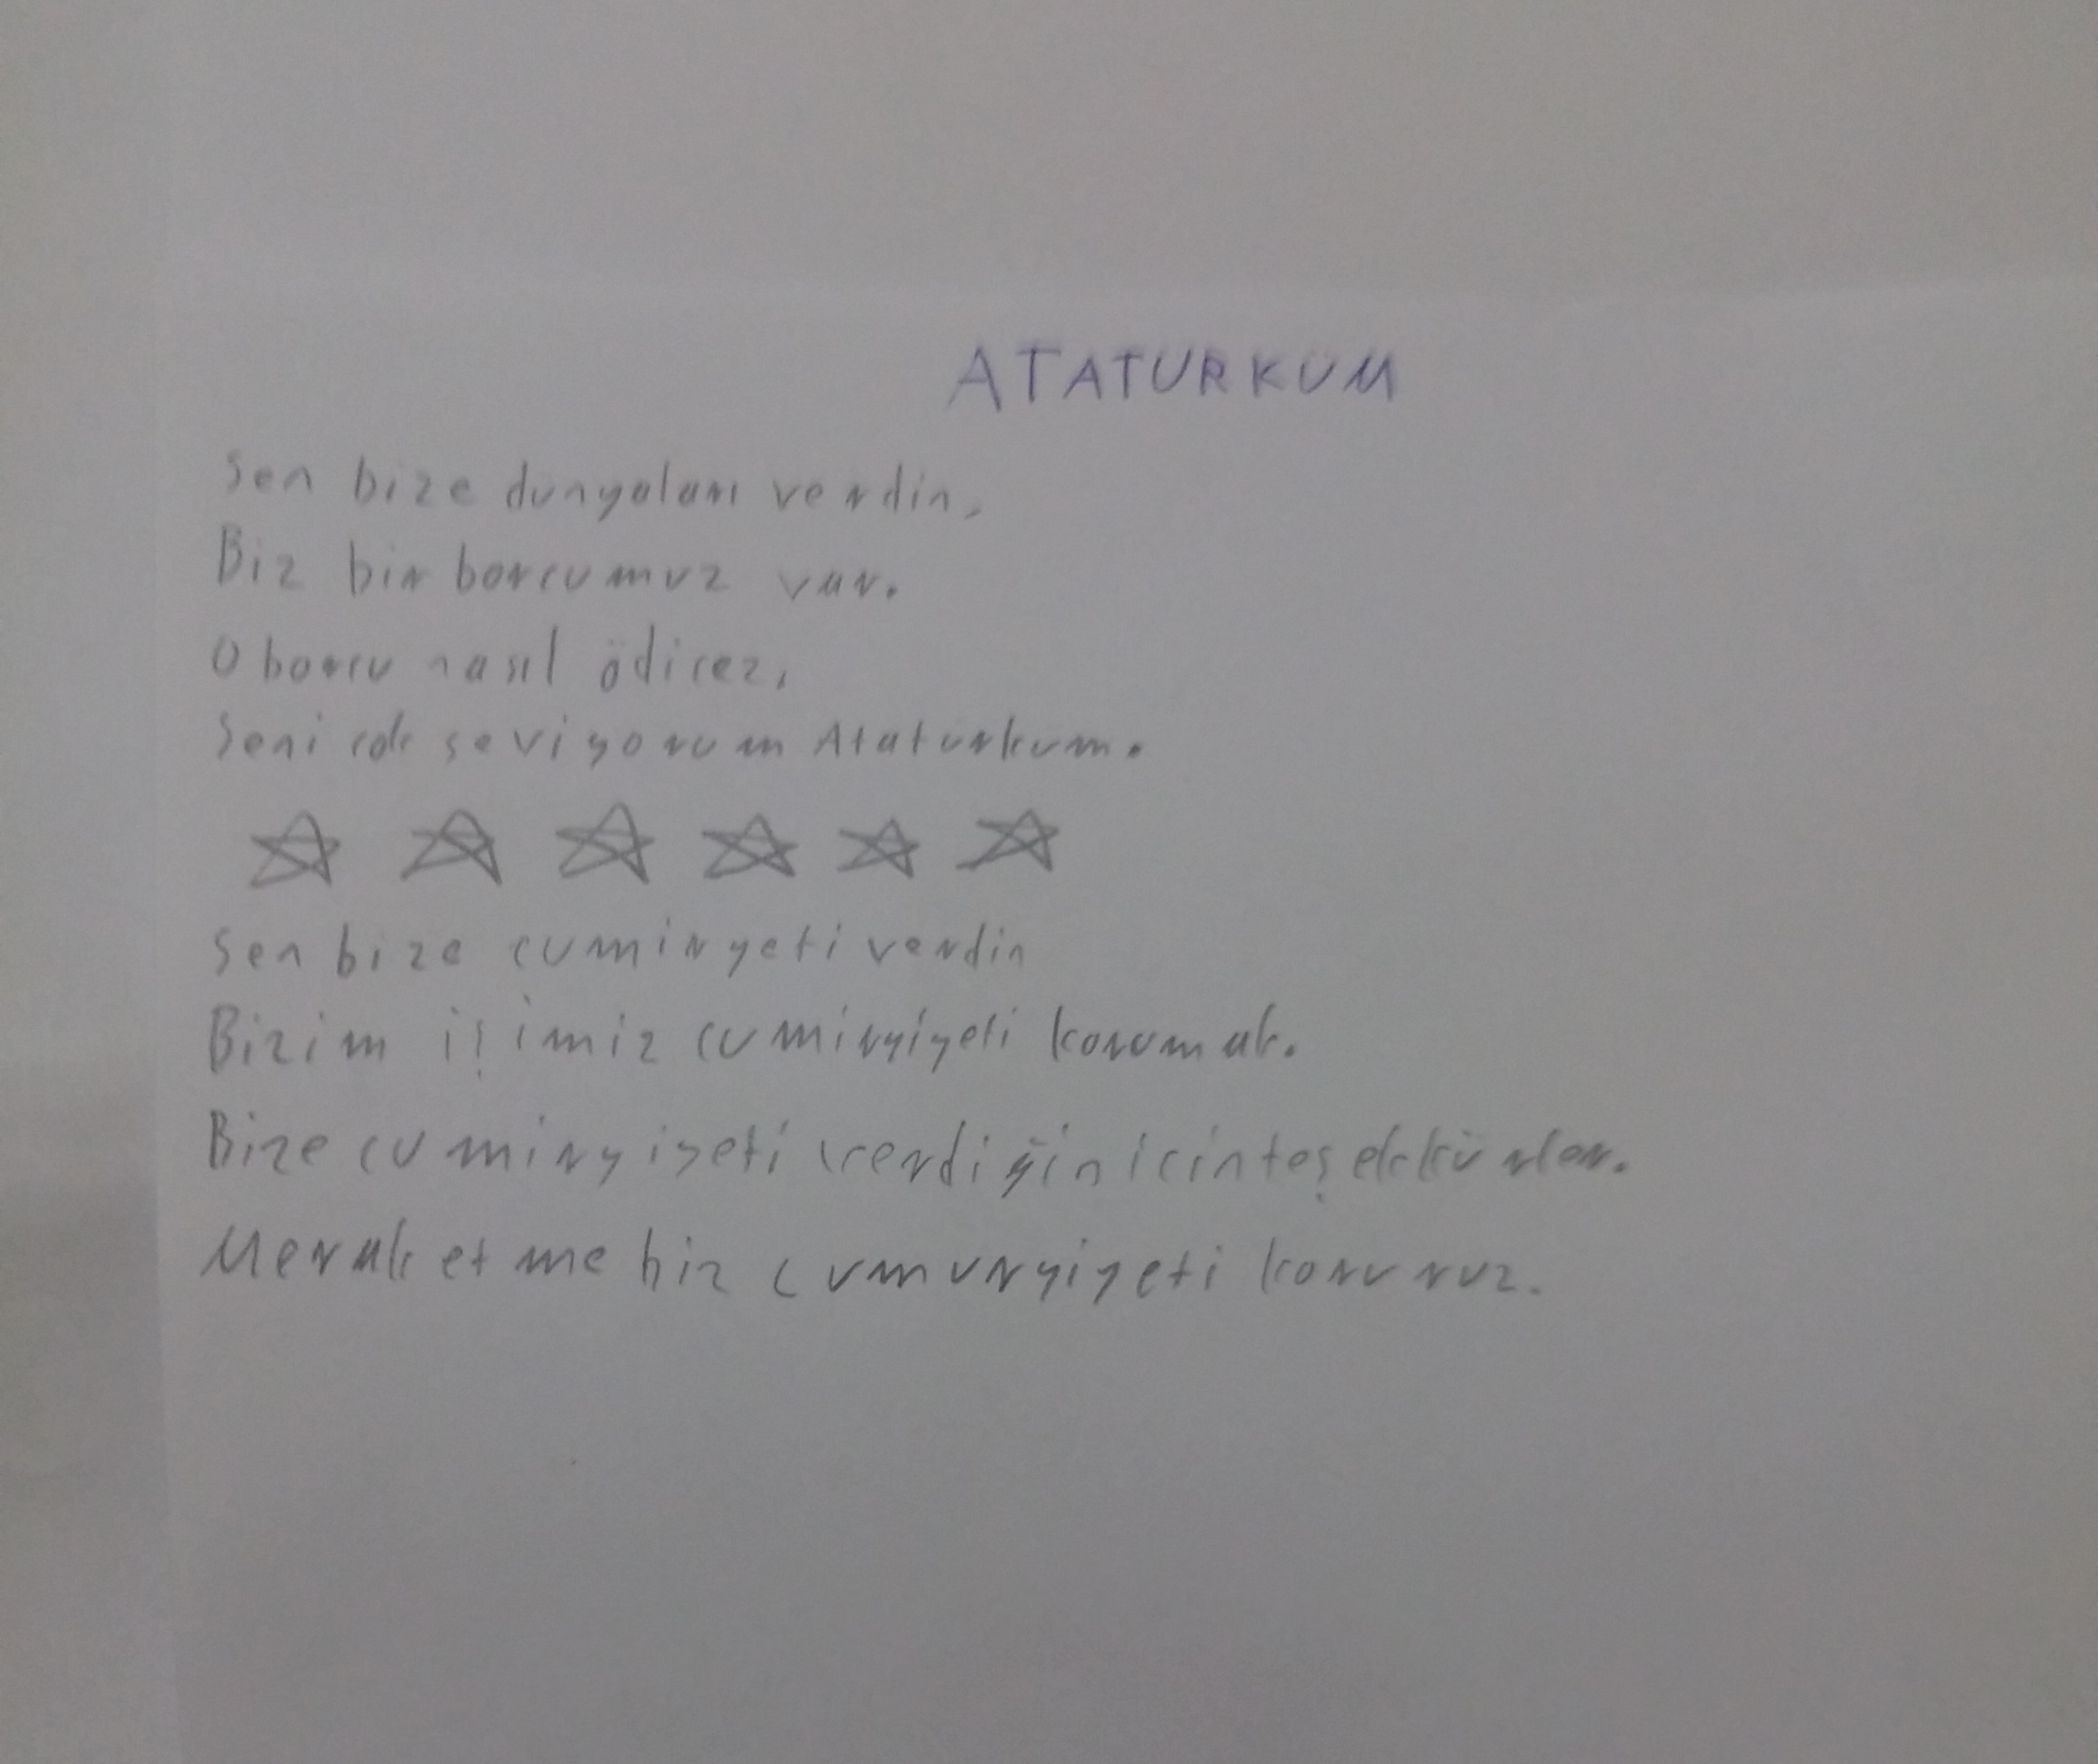 ATATURKUM
Sen bize dunyaları verdin,
Biz bir borcumuz var.
O borcu nasıl ödicez,
Seni cok seviyorum Ataturkum.
Sen bize cumiryeti verdin
Bizim işimiz cumiryiyeti korumak.
Bize cumiryiyeti verdiğin icin teşekkürler.
Merak etme biz cumuryiyeti koruruz.